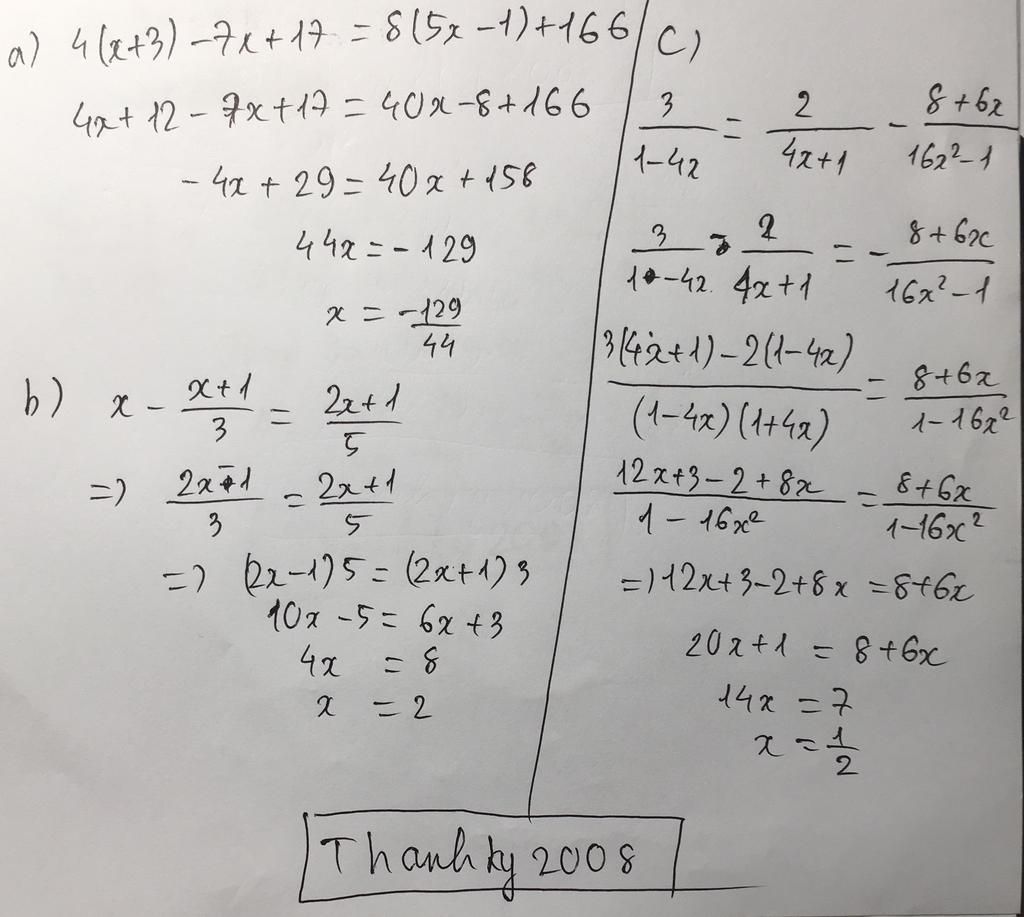 a) 4(x+3) - 7x + 17 = 8(5x - 1) + 166
4x + 12 - 7x + 17 = 40x - 8 + 166
- 4x + 29 = 40x + 158
44x = - 129
x = -129/44
b) x - (x+1)/3 = (2x+1)/5
=) (2x-1)/3 = (2x+1)/5
=) (2x-1)5 = (2x+1)3
10x - 5 = 6x + 3
4x = 8
x = 2
C)
3/(1-4x) = 2/(4x+1) - (8+6x)/(16x²-1)
3/(1-4x) - 2/(4x+1) = - (8+6x)/(16x²-1)
(3(4x+1) - 2(1-4x))/((1-4x)(1+4x)) = (8+6x)/(1-16x²)
(12x+3-2+8x)/(1-16x²) = (8+6x)/(1-16x²)
=) 12x+3-2+8x = 8+6x
20x+1 = 8+6x
14x = 7
x = 1/2
Thanhky 2008